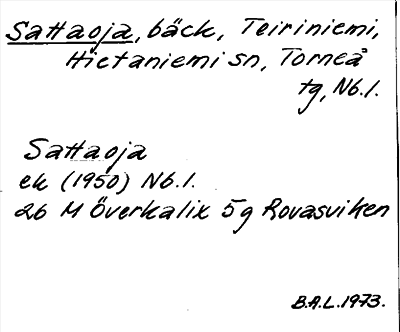 Sattaoja, bäck, Teiriniemi,
Hietaniemi sn, Torneå
tg, Nb.l.
Sattaoja
ek (1950) Nb.l.
26 M Överkalix 5g Rovasviken
B.A.L. 1973.